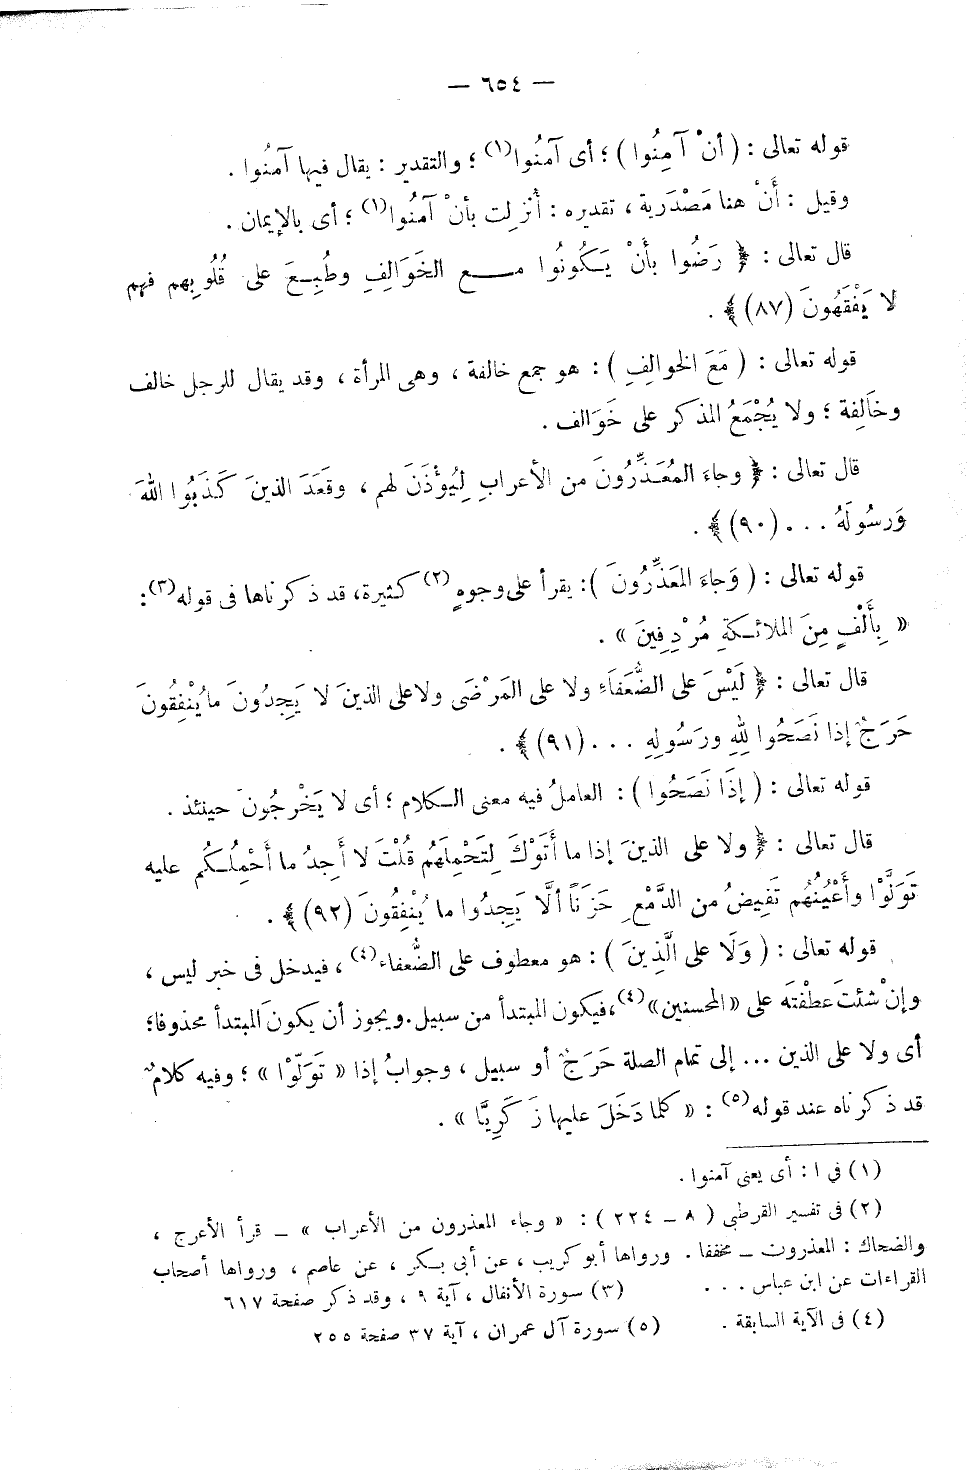 — ٦٥٤ —
قوله تعالى : ( أنْ آمِنُوا ) ؛ أى آمَنُوا(١) ؛ والتقدير : يقال فيها آمنُوا .
وقيل : أَنْ هنا مَصْدَرية ، تقديره : أُنْزِلت بأنْ آمنُوا(١) ؛ أى بالإيمان .
قال تعالى : ﴿ رَضُوا بأَنْ يَكُونُوا مع الخَوَالِفِ وطُبِعَ على قُلُوبِهم فهم
لا يَفْقَهُونَ (٨٧) ﴾ .
قوله تعالى : ( مَعَ الخوالِفِ ) : هو جمع خالفة ، وهى المرأة ، وقد يقال للرجل خالف
وخَالِفة ؛ ولا يُجْمَعُ المذكر على خَوَالف .
قال تعالى : ﴿ وجاءَ المُعَذِّرُونَ من الأعرابِ لِيُؤْذَنَ لهم ، وقَعَدَ الذينَ كَذَبُوا اللهَ
وَرسُولَهُ ... (٩٠) ﴾ .
قوله تعالى : ( وَجاءَ المعَذِّرُونَ ) : يقرأ على وجوهٍ(٢) كثيرة، قد ذكرناها فى قوله(٣) :
« بِأَلْفٍ مِنَ الملائكةِ مُرْدِفِينَ » .
قال تعالى : ﴿ لَيْسَ على الضُّعَفَاءِ ولا على المَرْضَى ولاعلى الذينَ لا يَجِدُونَ مايُنْفِقُونَ
حَرَجٌ إذا نَصَحُوا لِلهِ ورَسُولِهِ ... (٩١) ﴾ .
قوله تعالى : ( إِذَا نَصَحُوا ) : العاملُ فيه معنى الكلام ؛ أى لا يَخْرجُونَ حينئذ .
قال تعالى : ﴿ ولا على الذينَ إذا ما أَتَوْكَ لِتَحْمِلَهُم قُلْتَ لا أَجِدُ ما أَحْمِلُكُم عليه
تَوَلَّوْا وأَعْيُنُهُم تَفِيضُ من الدَّمْعِ حَزَنًا ألَّا يَجِدُوا ما يُنْفِقُونَ (٩٢) ﴾ .
قوله تعالى : ( وَلَا على الَّذِينَ ) : هو معطوف على الضُّعفاء(٤) ، فيدخل فى خبر ليس ،
وإنْ شئتَ عطفْتَه على «المحسنين»(٤)، فيكون المبتدأ من سبيل. ويجوز أن يكونَ المبتدأ محذوفا؛
أى ولا على الذين ... إلى تمام الصلة حَرَجٌ أو سبيل ، وجوابُ إذا « تَوَلّوْا » ؛ وفيه كلامٌ
قد ذكرناه عند قوله(٥) : « كلما دَخَلَ عليها زَكَرِيَّا » .
(١) فى ا : أى يعنى آمنوا .
(٢) فى تفسير القرطبى ( ٨ – ٢٢٤ ) : « وجاء المعذرون من الأعراب » – قرأ الأعرج ،
والضحاك : المعذرون – مخففا . ورواها أبو كريب ، عن أبى بكر ، عن عاصم ، ورواها أصحاب
القراءات عن ابن عباس ... (٣) سورة الأنفال ، آية ٩ ، وقد ذكر صفحة ٦١٧
(٤) فى الآية السابقة . (٥) سورة آل عمران ، آية ٣٧ صفحة ٢٥٥